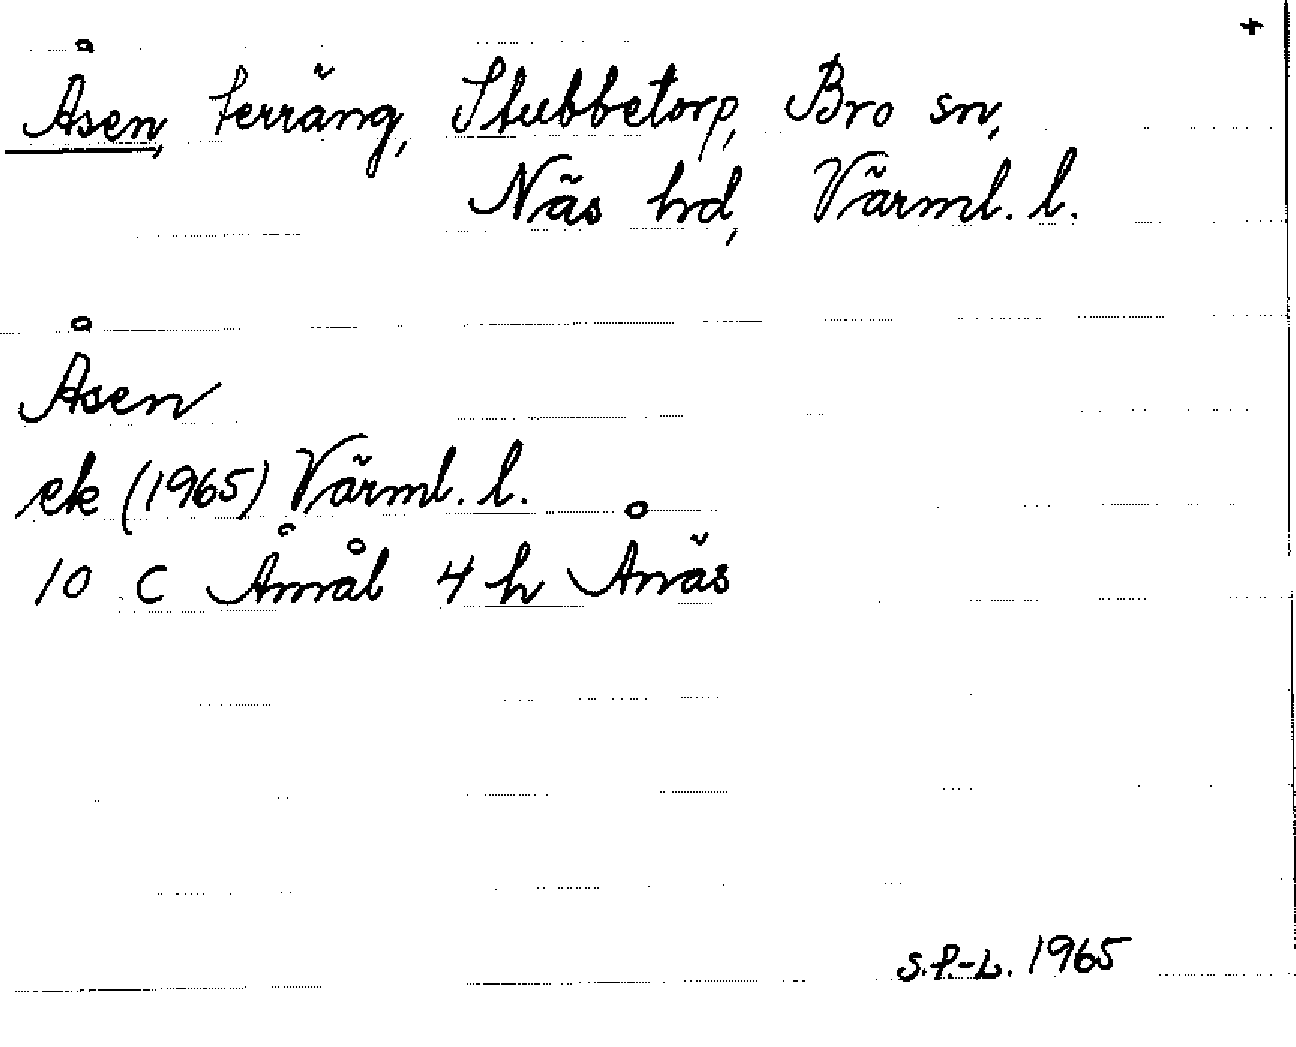 +
Åsen, terräng, Stubbetorp, Bro sn,
Näs hd, Värml. l.
Åsen
ek (1965) Värml. l.
10 C Åmål 4 h Ånäs
S.P-L. 1965